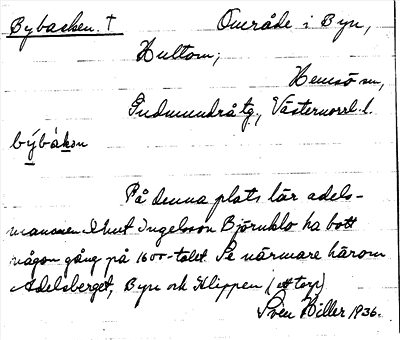 Bybacken. † Område i Byn,
Hultom;
Hemsö sn,
Gudmundrå tg, Västernorrl. l.
býbákən
På denna plats lär adels-
mannen Knut Ingelsson Björnklo ha bott
någon gång på 1600-talet. Se närmare härom
Adelsberget, Byn och Klippen (ett torp)
Sven Hiller 1936.